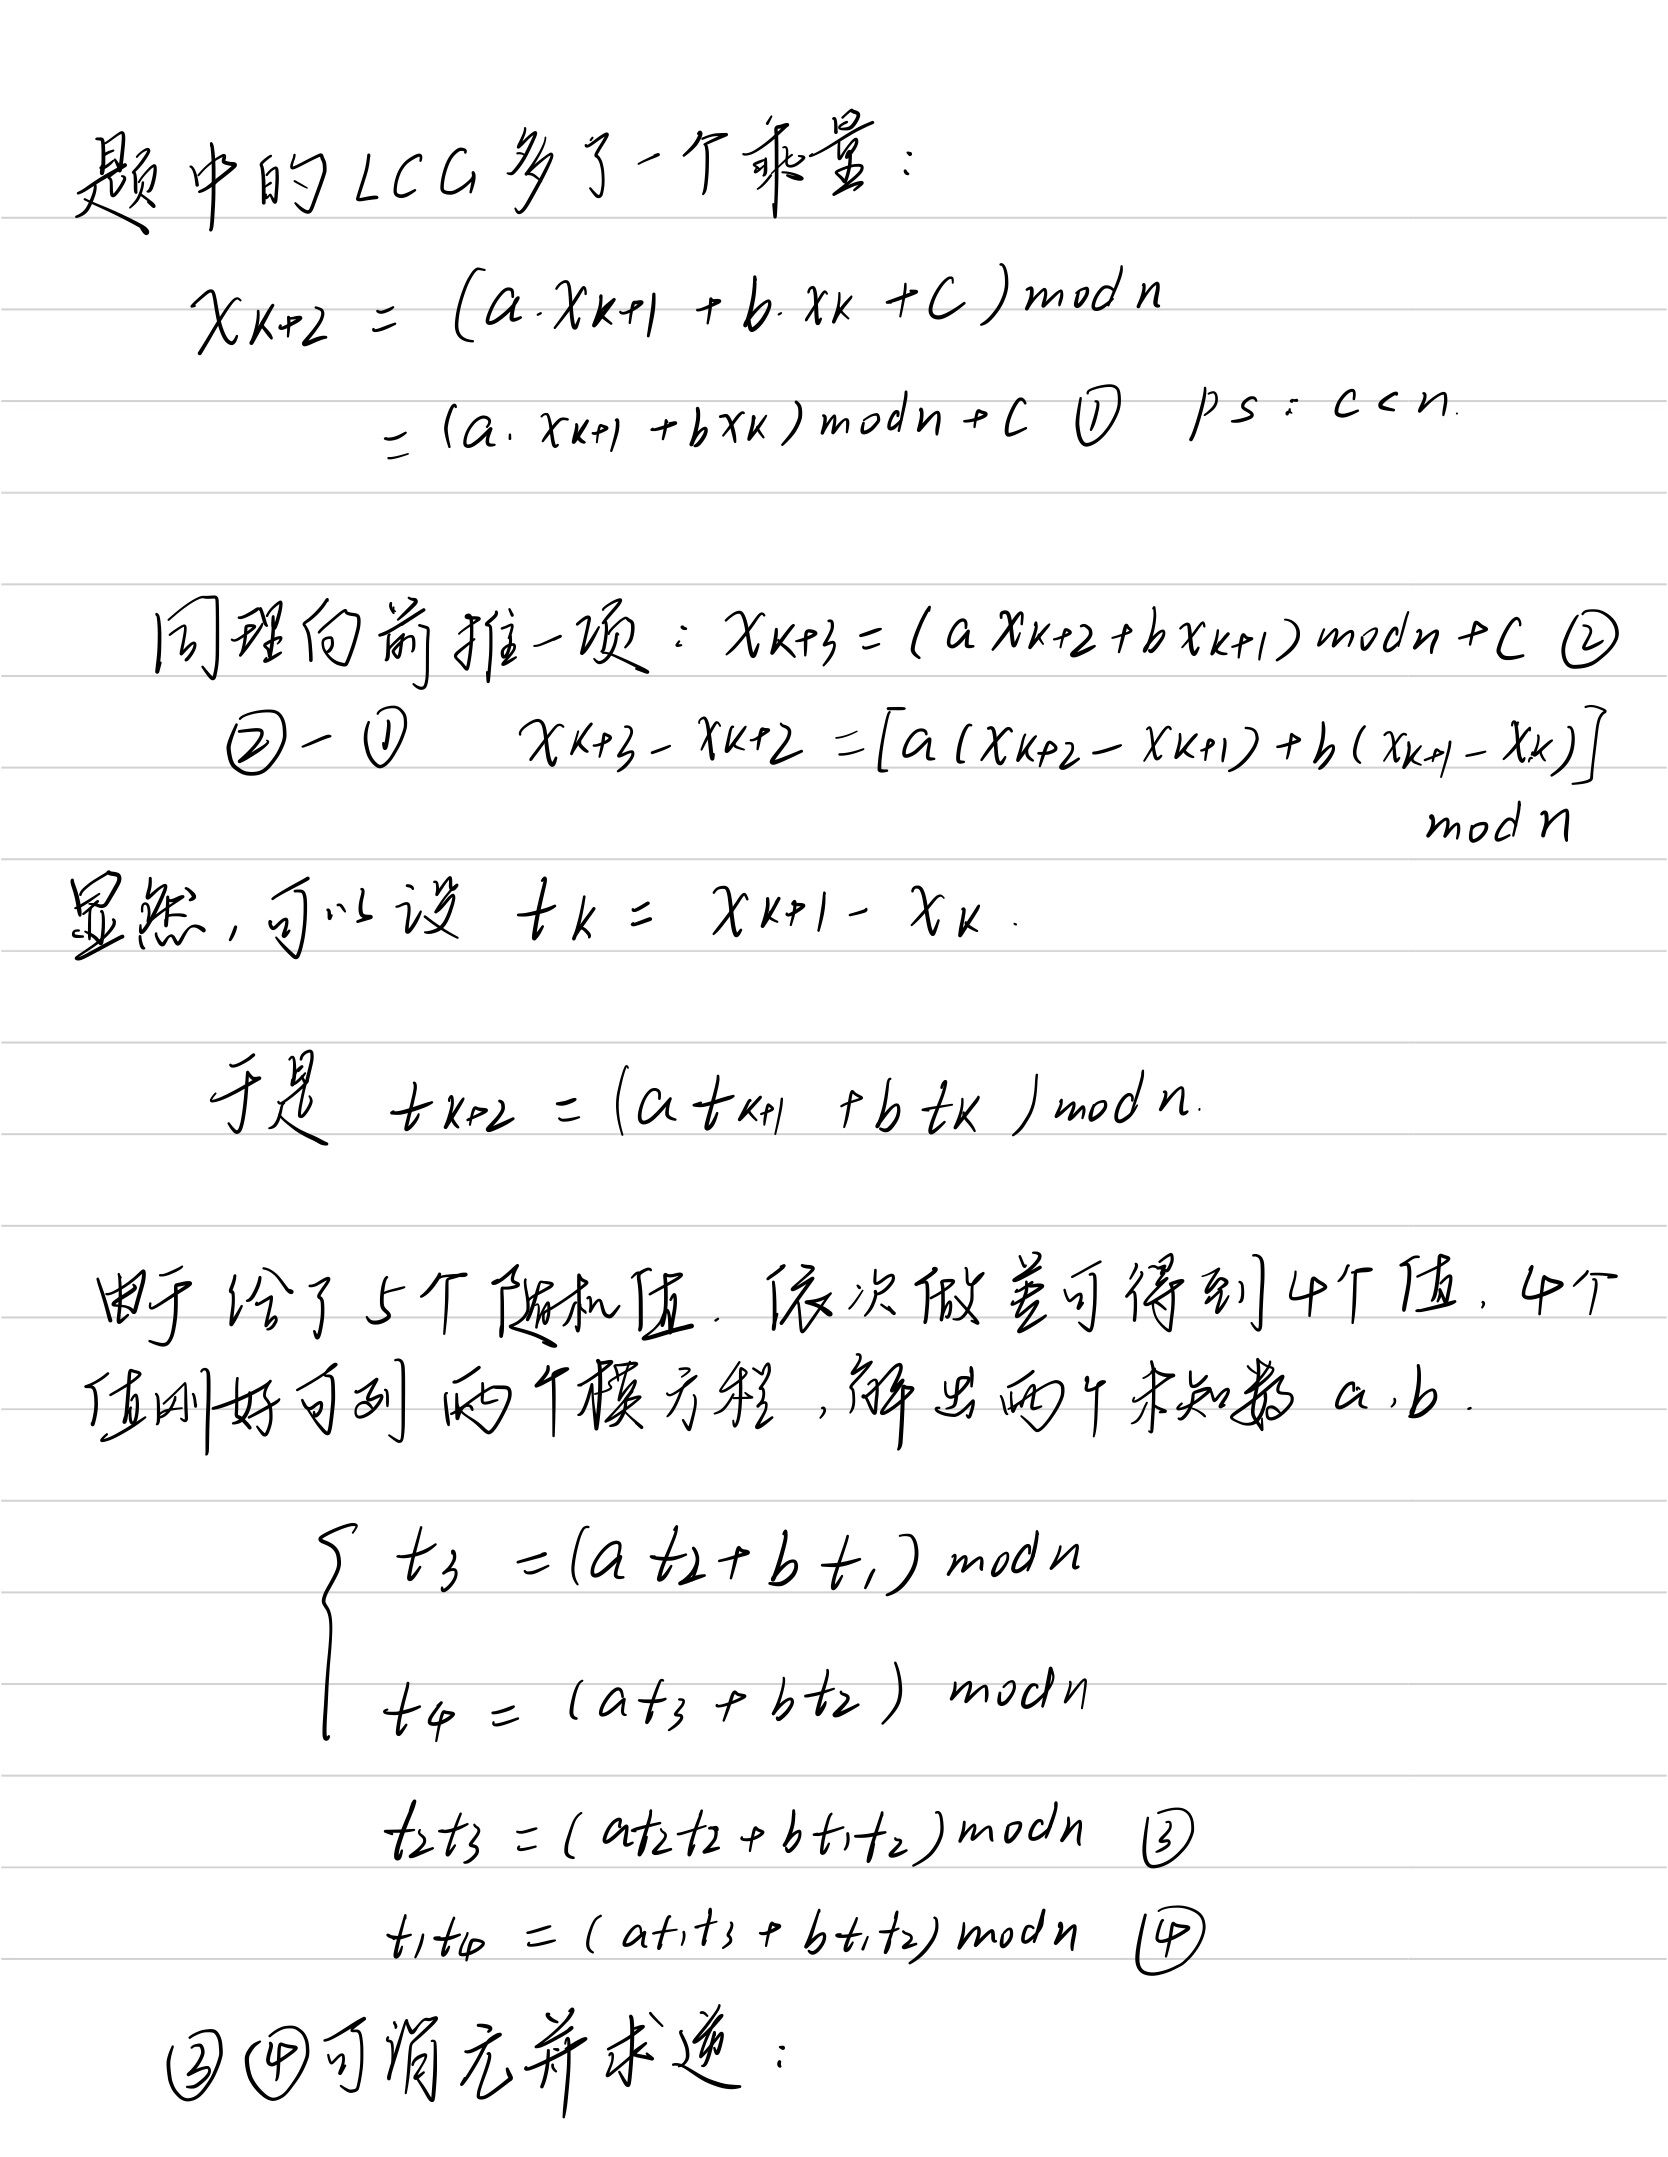 题中的LCG多了一个乘量：
XK+2 = (a·XK+1 + b·XK + C) mod n
= (a·XK+1 + bXK) mod n + C ① ps：c<n.
同理向前推一项：XK+3 = (aXK+2 + bXK+1) mod n + C ②
②-① XK+3 - XK+2 = [a(XK+2 - XK+1) + b(XK+1 - XK)]
mod n
显然，可以设 tK = XK+1 - XK.
于是 tK+2 = (atK+1 + btK) mod n.
由于给了5个随机值. 依次做差可得到4个值, 4个
值刚好可列两个模方程,解出两个未知数 a,b.
t3 = (at2 + bt1) mod n
t4 = (at3 + bt2) mod n
t2t3 = (at2t2 + bt1t2) mod n ③
t1t4 = (at1t3 + bt1t2) mod n ④
③④可消元并求逆：